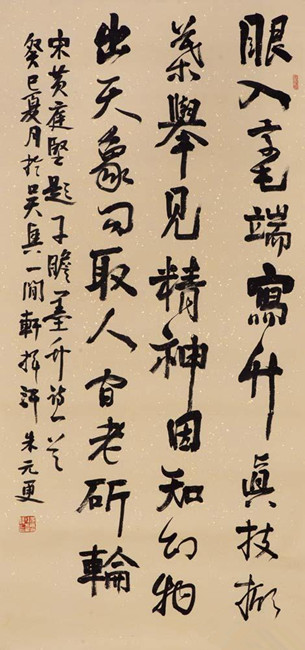 眼入毫端寫竹眞枝掀
葉舉見精神因知幻物
出无象问取人间老斫輪
宋黄庭堅題子瞻墨竹詩一首
癸巳夏月於吴興一閒軒揮汗 朱元更